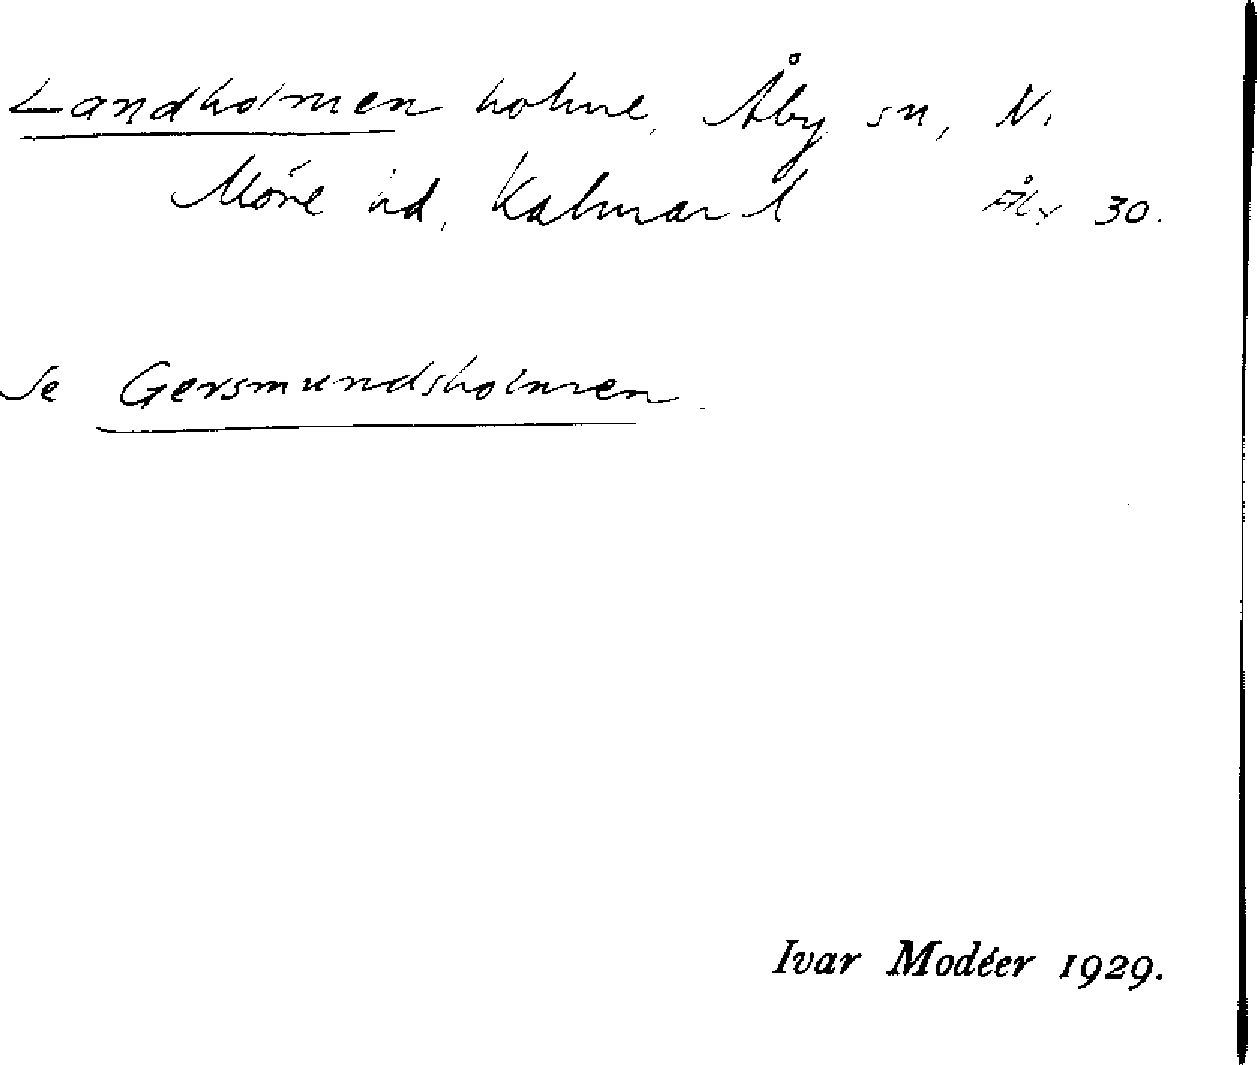 Landholmen holme, Åby sn, N.
Möre hd, Kalmar l Åby 30.
Se Gersmundsholmen
Ivar Modéer 1929.